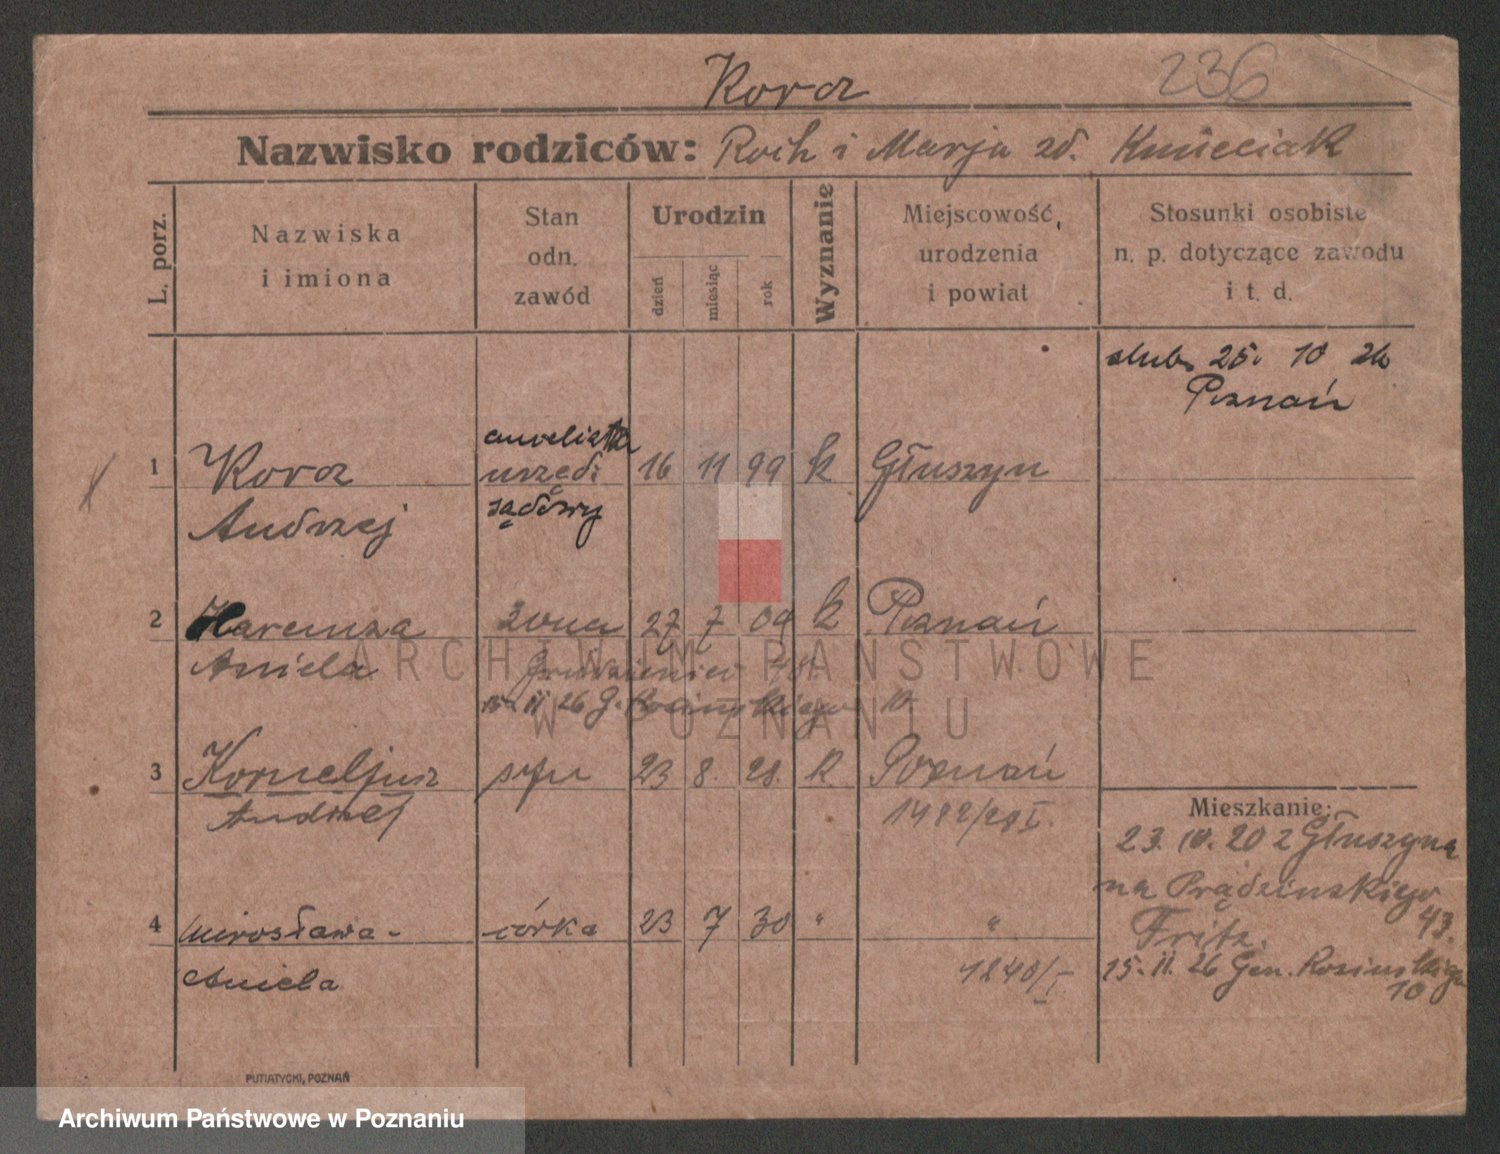 Kora
236
Nazwisko rodziców: Roch i Marja zd. Kmieciak
L. porz.
Nazwiska
i imiona
Stan
odn.
zawód
Urodzin
dzień
miesiąc
rok
Wyznanie
Miejscowość,
urodzenia
i powiat
Stosunki osobiste
n. p. dotyczące zawodu
i t. d.
ślub 25. 10 26
Poznań
1 Kora urzędn 16 11 99 k Głuszyn
Andrzej sądowy
2 Haremza żona 27 7 09 k Poznań
Aniela
15. 11 26 G. 10
3 Korneljusz syn 23 8. 28. k. Poznań
Andrzej 1492/28 I.
Mieszkanie:
23. 10. 20 z Głuszyna
na Prądzińskiego
43.
Fritz.
4 Mirosława - córka 23 7 30 " "
Aniela 1240/I
15. 11. 26 Gen. Kosińskiego
10
PUTIATYCKI, POZNAŃ
ARCHIWUM PAŃSTWOWE
W POZNANIU
Archiwum Państwowe w Poznaniu